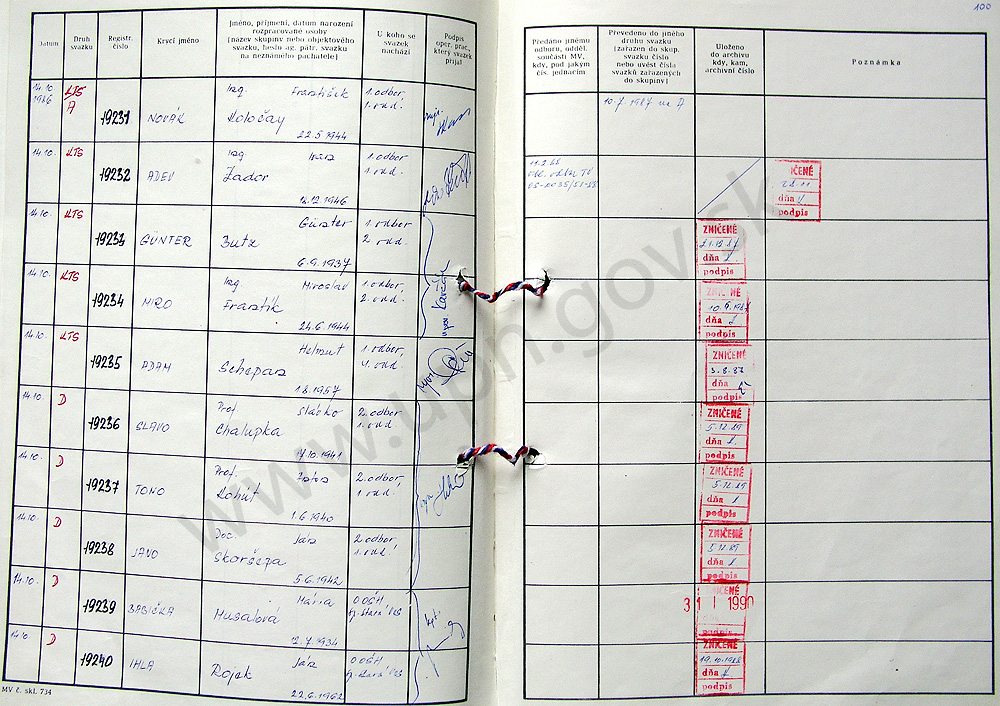 100
Datum
Druh svazku
Registr. číslo
Krycí jméno
Jméno, příjmení, datum narození rozpracované osoby (název skupiny nebo objektového svazku, heslo ag. pátr. svazku na neznámého pachatele)
U koho se svazek nachází
Podpis oper. prac., který svazek přijal
Předáno jinému odboru, odděl. součásti MV, kdy, pod jakým čís. jednacím
Převedeno do jiného druhu svazku (zařazen do skup. svazku číslo nebo uvést čísla svazků zařazených do skupiny)
Uloženo do archivu kdy, kam, archivní číslo
Poznámka
14.10. 1986 KTS A 19231 NOVÁK Ing František Holočay 22.5.1944 1. odbor 1. odd. 10.7.1987 na A
14.10. KTS 19232 ADEV Ing Zador 12.1946 1. odbor 1. odd.
NIČENÉ
dňa
podpis
14.10. KTS 19233 GÜNTER Günter Butz 6.9.1937 1. odbor 2. odd.
ZNIČENÉ
21.12.87
dňa
podpis
14.10. KTS 19234 MIRO Ing Miroslav Frantík 24.6.1944 1. odbor, 2. odd.
ZNIČENÉ
dňa
podpis
14.10. KTS 19235 ADAM Helmut Schepas 1.8.1957 1. odbor, odd.
ZNIČENÉ
3.8.87
dňa
podpis
14.10. D 19236 SLAVO Prof. Slavko Chalupka 14.10.1941 2. odbor 1. odd.
ZNIČENÉ
5.12.89
dňa
podpis
14.10. D 19237 TONO Prof. Kohút 1.6.1940 2. odbor, 1. odd.
ZNIČENÉ
5.12.89
dňa
podpis
14.10. D 19238 JANO Doc. Ján 5.6.1942 2. odbor 1. odd.
ZNIČENÉ
5.12.89
dňa
podpis
14.10. D 19239 BABIČKA Mária Husalová 12.7.1934 OOŠH
ZNIČENÉ
3 1 I 1990
podpis
14.10. D 19240 IHLA Ján Rojek 22.6.1962 OOŠH
ZNIČENÉ
dňa
podpis
MV č. skl. 734
www.upn.gov.sk